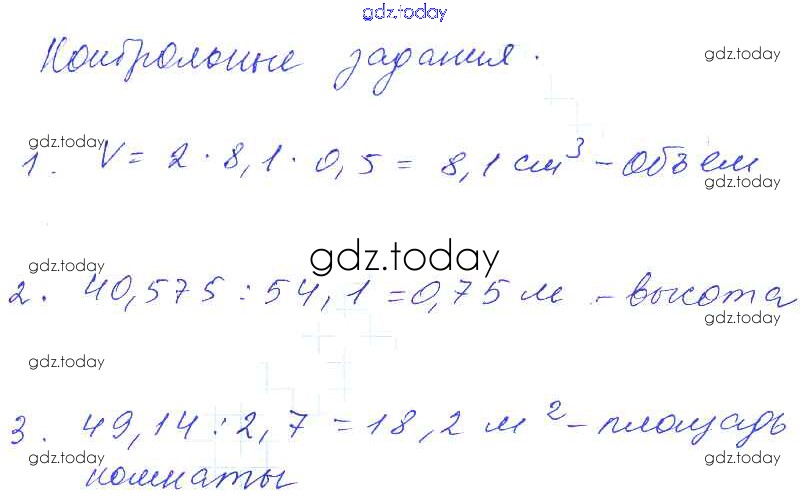 gdz.today
Контрольные задания.
gdz.today
gdz.today
1. V = 2 · 8,1 · 0,5 = 8,1 см³ – объем
gdz.today
gdz.today
gdz.today
2. 40,575 : 54,1 = 0,75 м – высота
gdz.today
gdz.today
3. 49,14 : 2,7 = 18,2 м² – площадь
gdz.today
gdz.today
комнаты